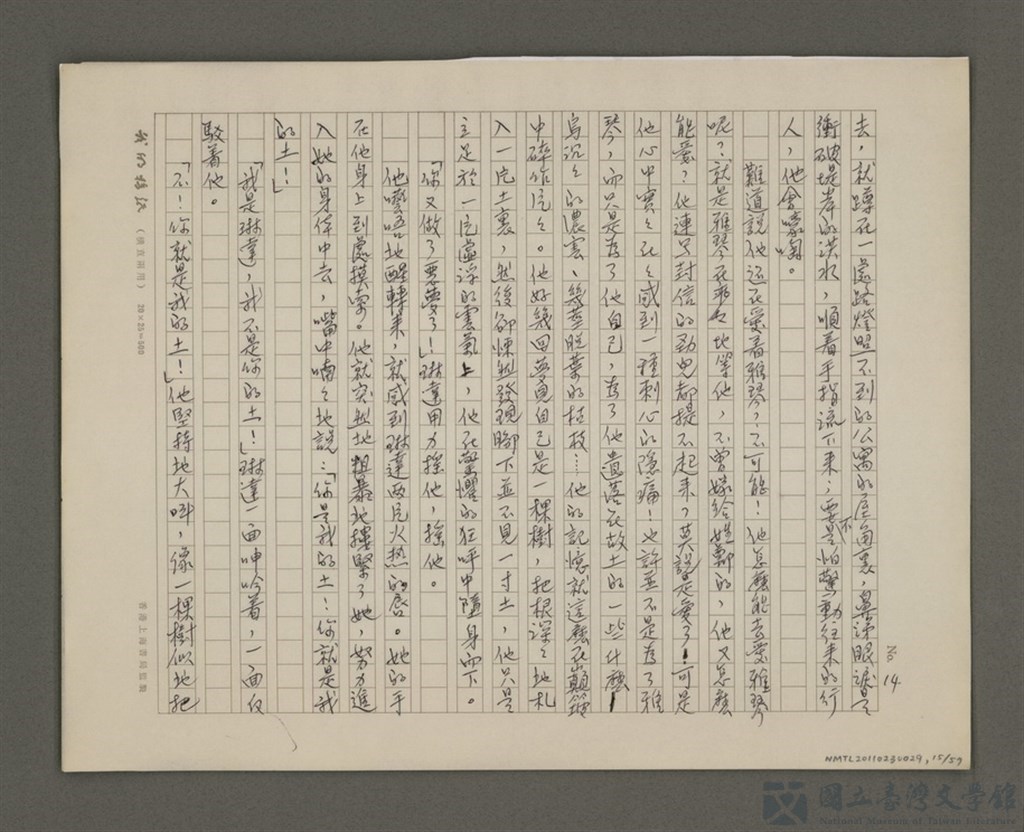 No. 14
去，就蹲在一處路燈照不到的公寓的屋角裏，鼻涕眼淚是
衝破堤岸的洪水，順着手指流下來；要不是怕驚動往來的行
人，他會嚎啕。
難道說他還在愛着雅琴？不可能！他怎麼能去愛雅琴
呢？就是雅琴在那地等他，不曾嫁給姓鄭的，他又怎麼
能愛？他連寫封信的勁兒都提不起來，莫說是愛了！可是
他心中實實在在感到一種刺心的隱痛！也許並不是為了雅
琴，而只是為了他自己，為了他遺落在故土的一些什麼！
烏沉沉的濃雲、幾莖脫葉的枯枝……他的記憶就這麼在巔簸
中碎作片片。他好幾回夢見自己是一棵樹，把根深深地札
入一片土裏，然後卻悚然發現腳下並不見一寸土，他只是
立足於一片虛浮的雲氣上，他在驚懼的狂呼中墮身而下。
「你又做了惡夢了！」琳達用力搖他，搖他。
他囈唔地醒轉來，就感到琳達兩片火熱的唇。她的手
在他身上到處摸索。他就突然地粗暴地摟緊了她，努力進
入她的身体中去，嘴中喃喃地說：「你是我的土！你就是我
的土！」
「我是琳達，我不是你的土！」琳達一面呻吟着，一面反
駁着他。
「不！你就是我的土！」他堅持地大叫，像一棵樹似地把
我的稿紙（橫直兩用） 20×25=500
香港上海書局監製
NMTL20110230029, 15/59
國立臺灣文學館
National Museum of Taiwan Literature